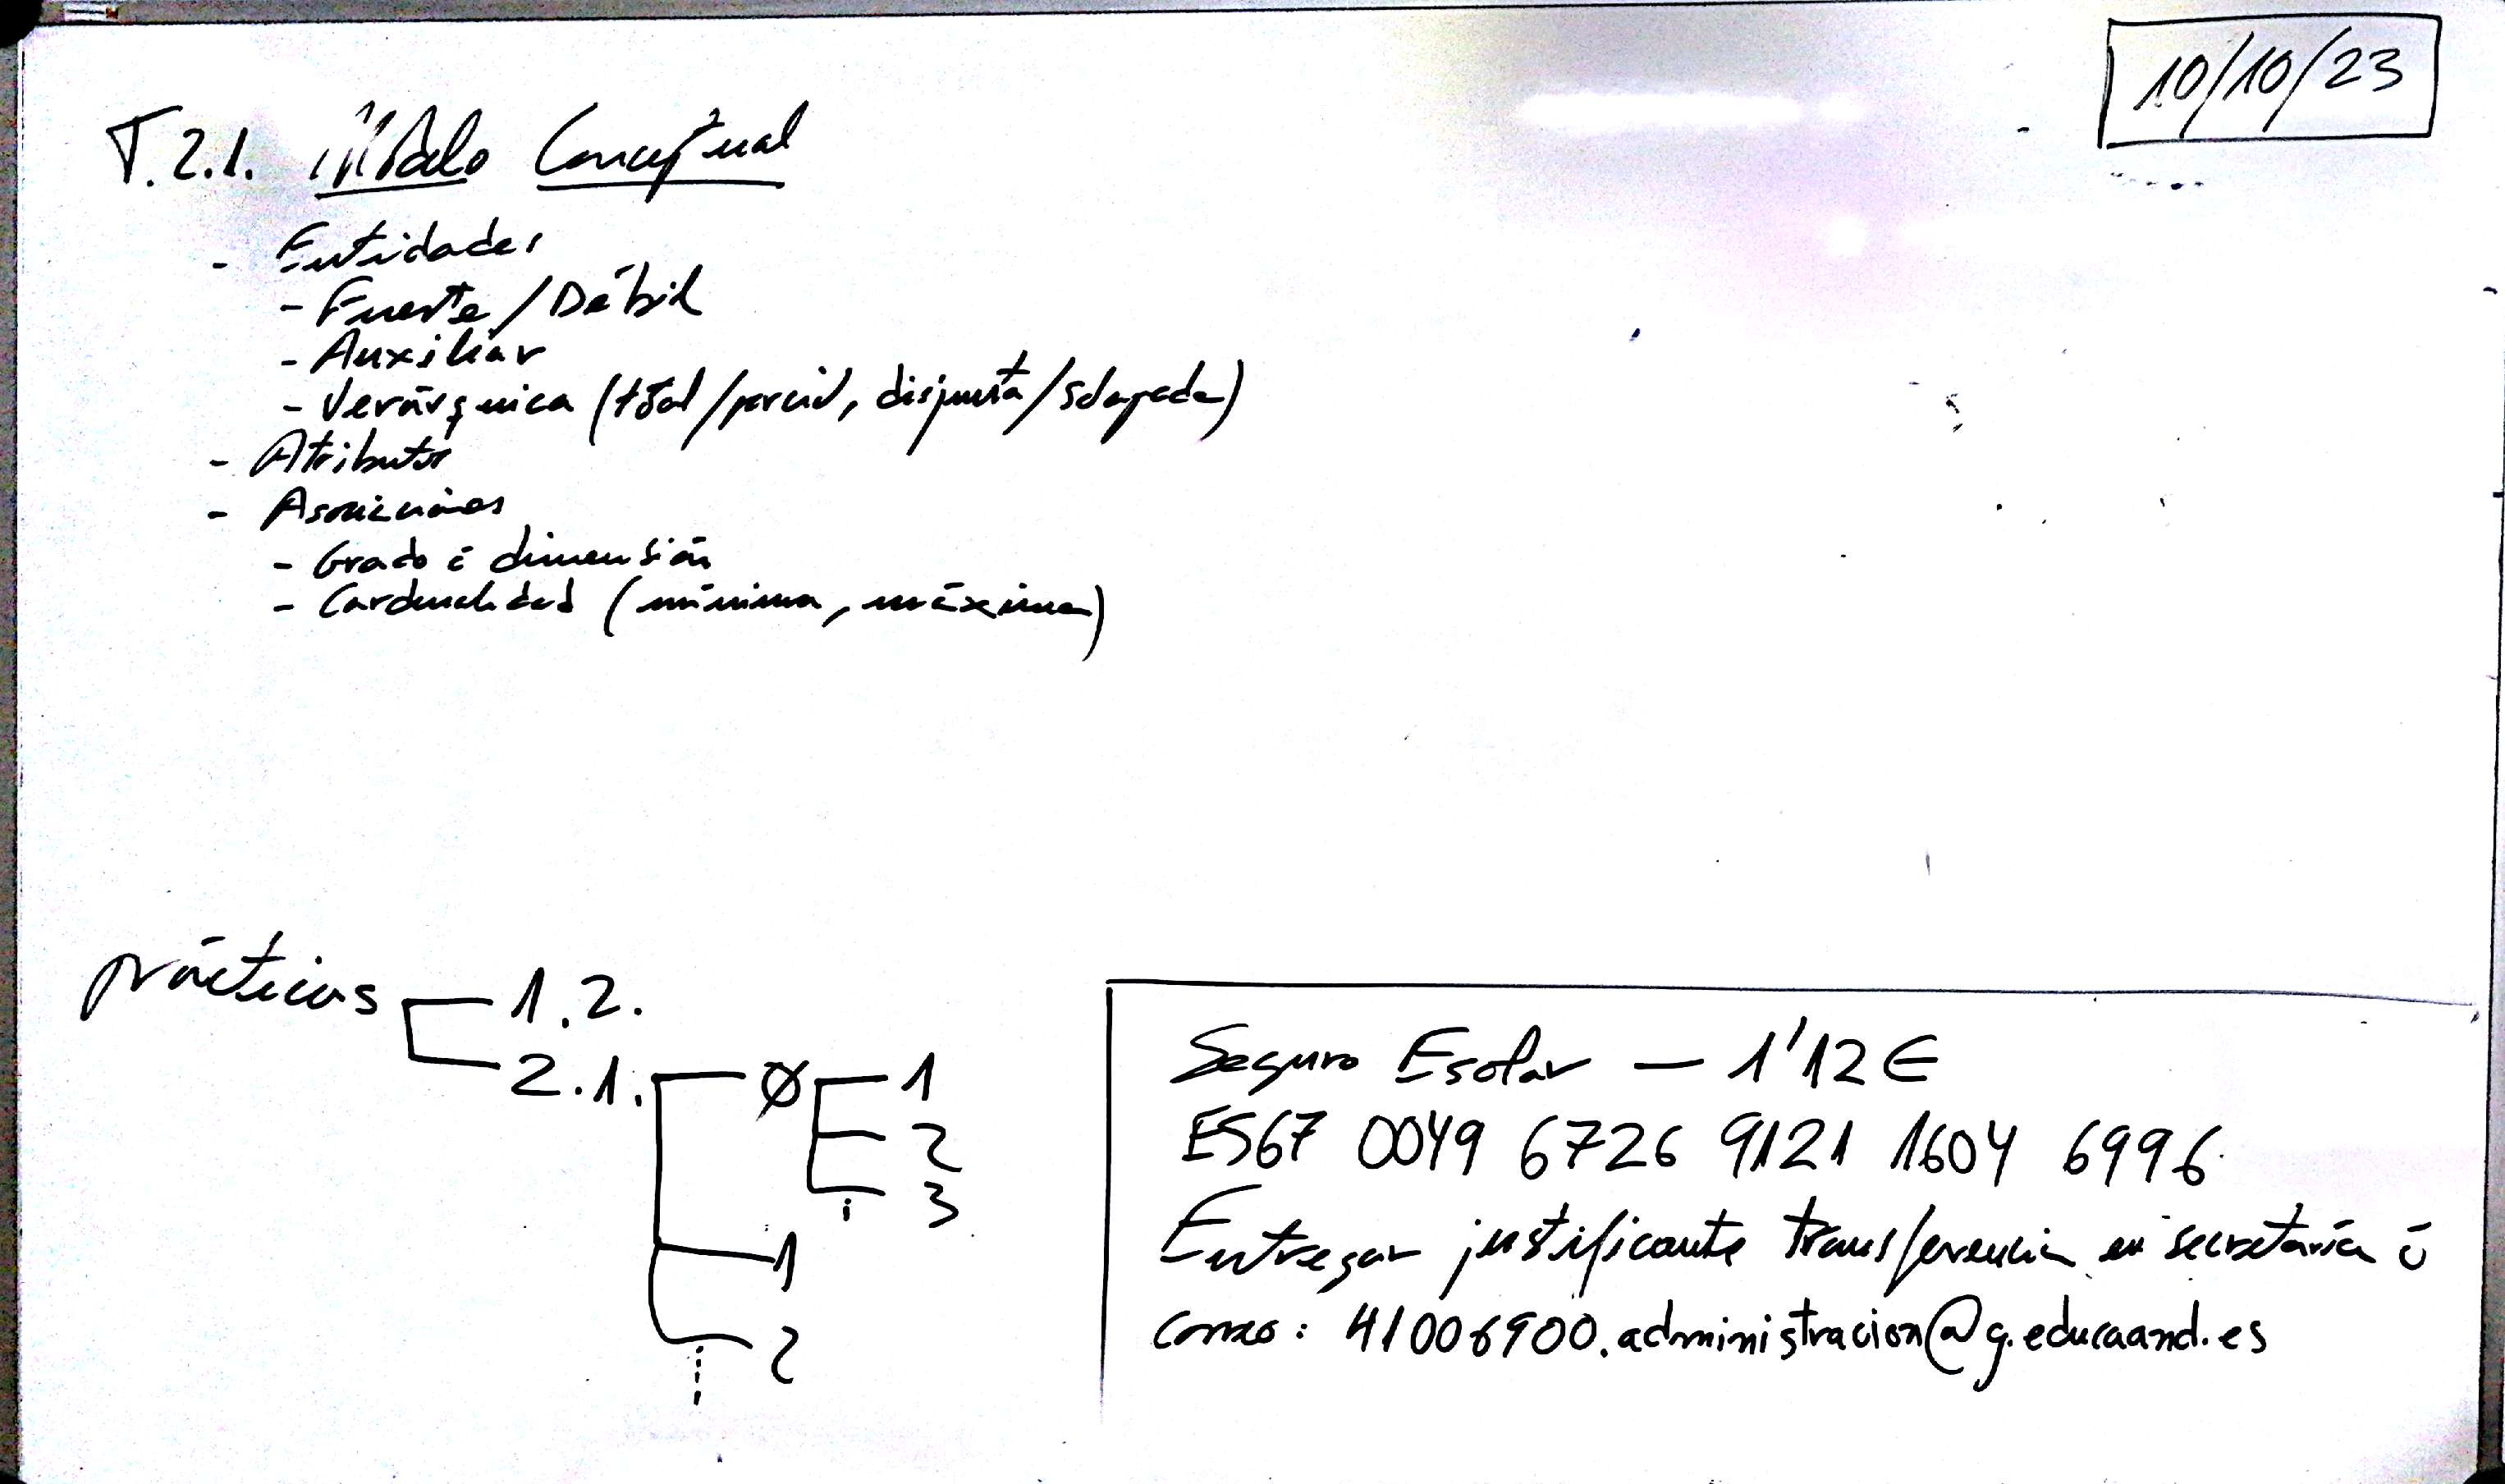 10/10/23
T.2.1. Modelo Conceptual
- Entidades
- Fuerte/Débil
- Auxiliar
- Jerárquica (total/parcial, disjunta/solapada)
- Atributos
- Asociaciones
- Grado ó dimensión
- Cardinalidad (mínima, máxima)
prácticas 1.2.
2.1. Ø 1
2
3
1
2
Seguro Escolar - 1'12€
ES67 0049 6726 9121 1604 6996
Entregar justificante transferencia en secretaría ó
correo: 41006900.administracion@g.educaand.es